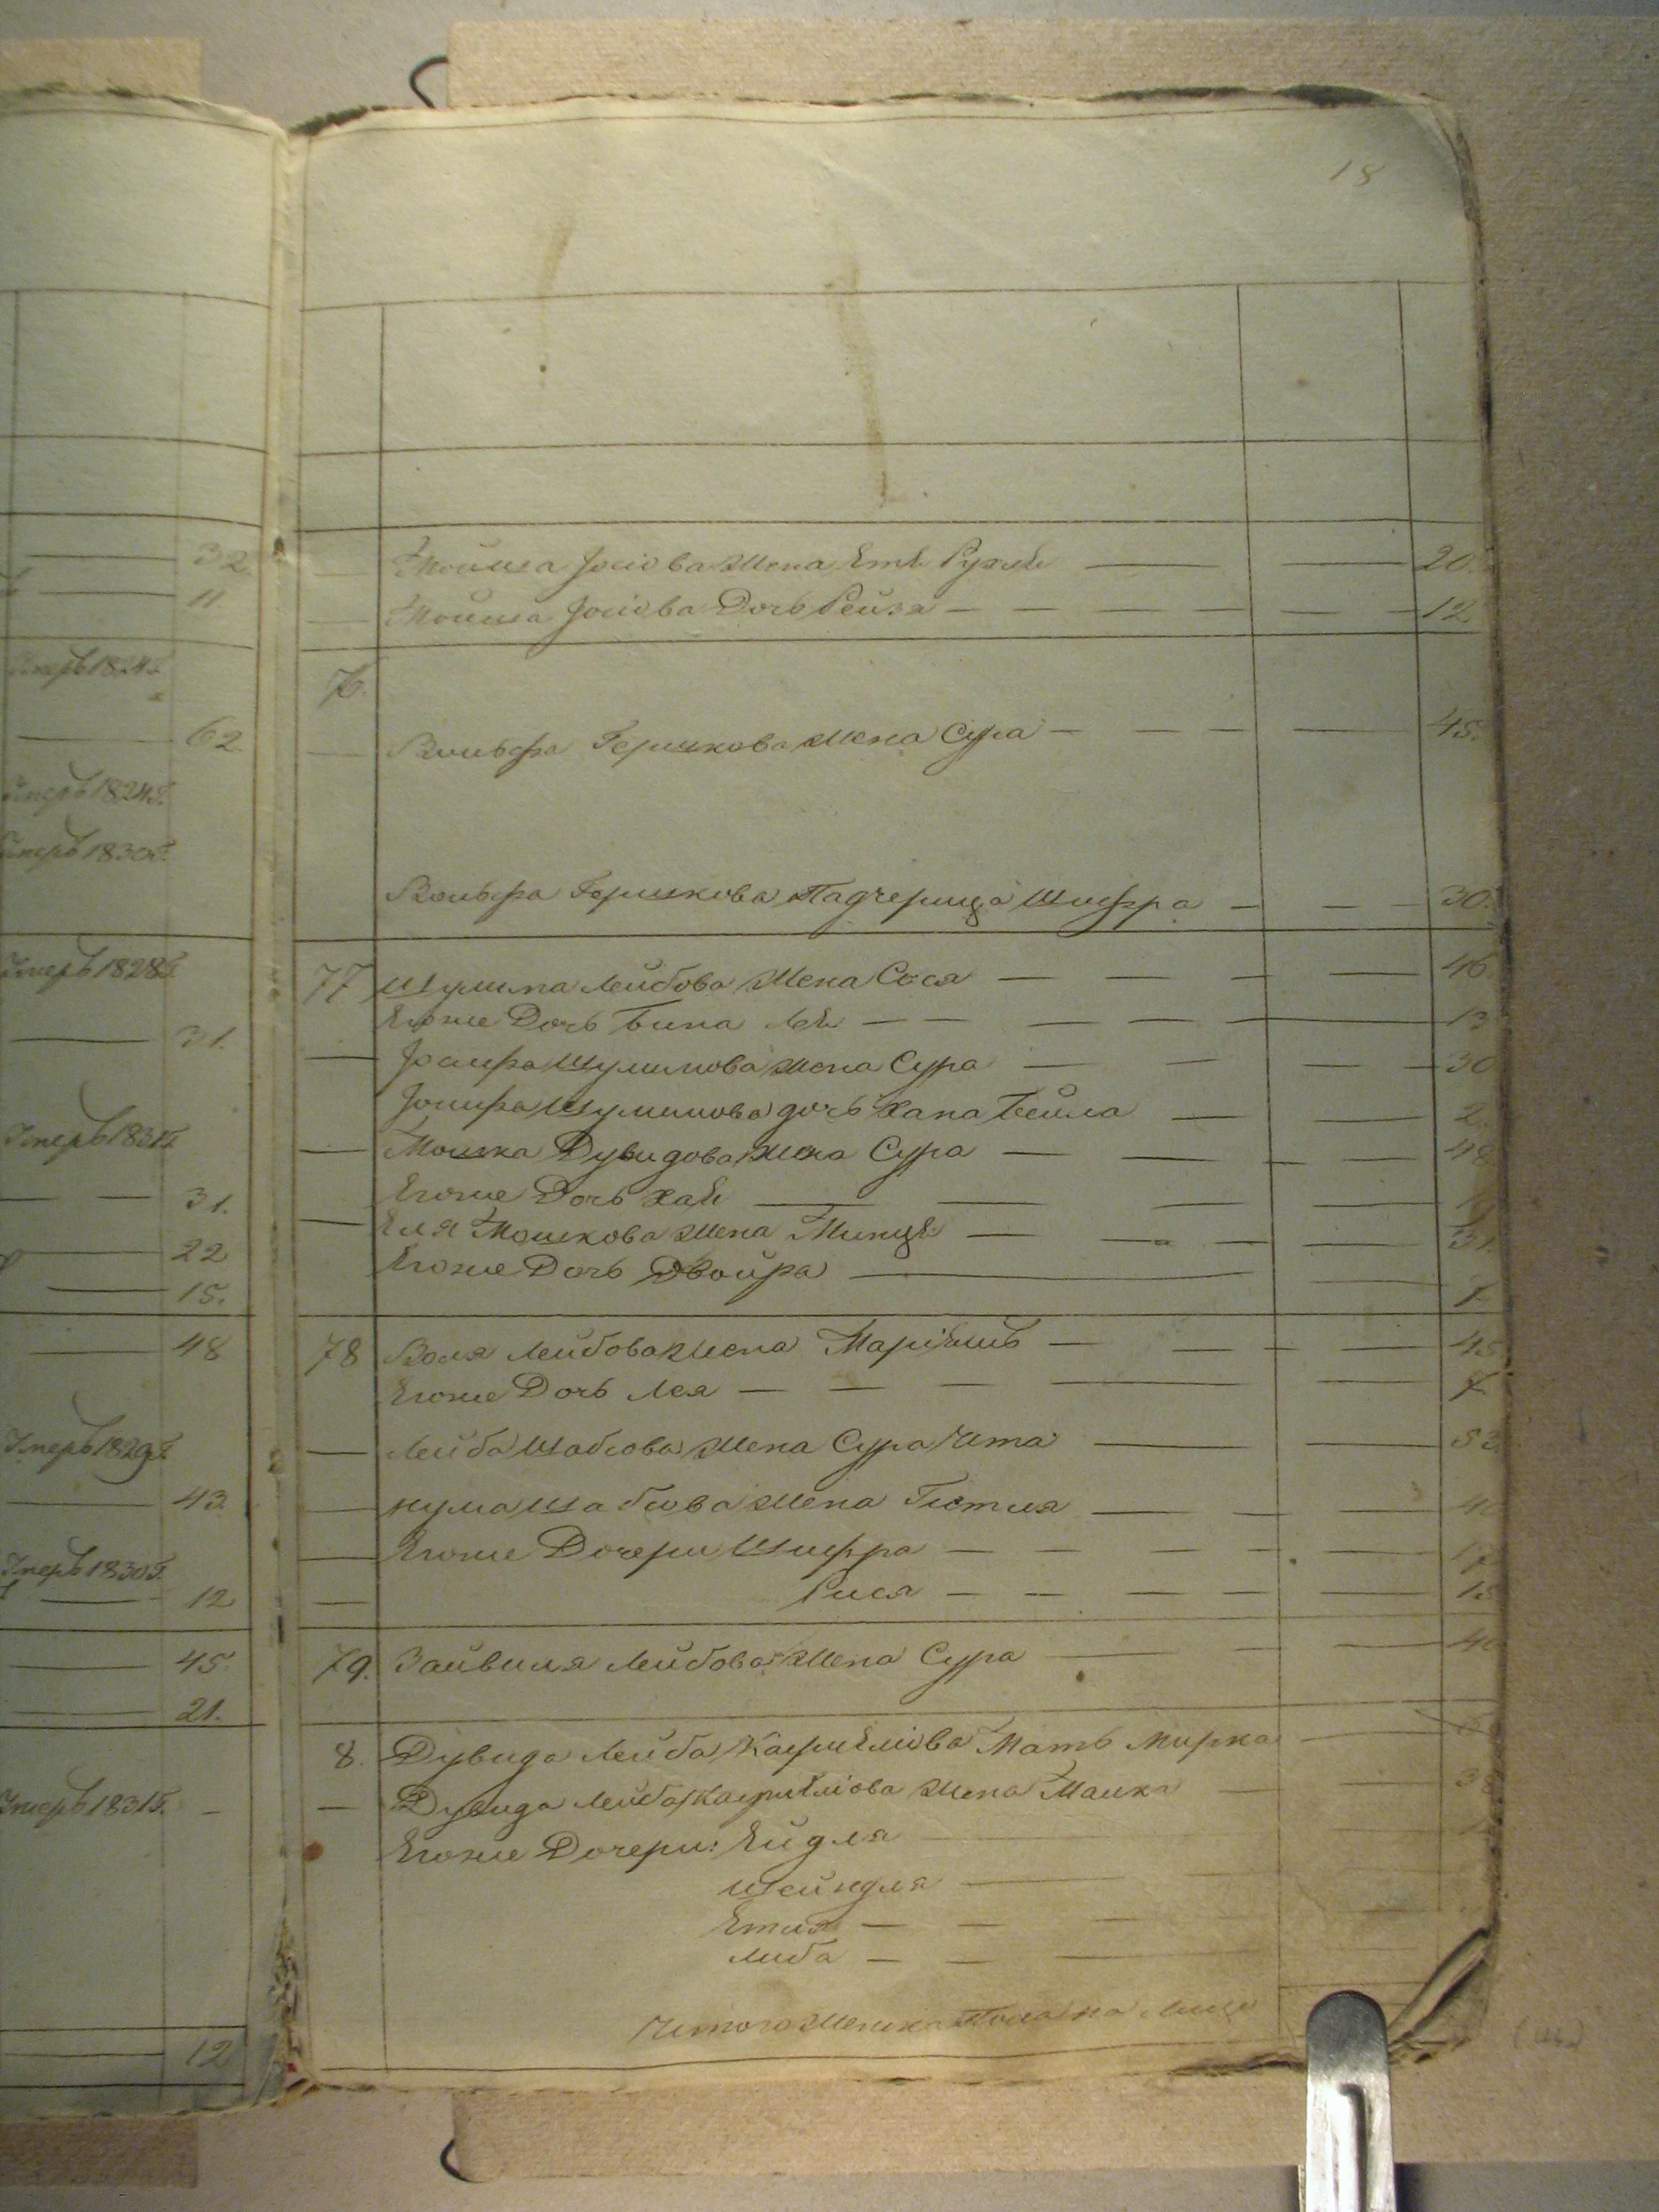 32
11
Умеръ 1824г.
62
Умеръ 1824г.
Умеръ 1830г.
Умеръ 1828г.
31.
Умеръ 1831г.
31.
22
15.
48
Умеръ 1829г.
43
Умеръ 1830г.
12
45.
21.
Умеръ 1831г.
12
18
Мойша Іосіова Жена Ет Рухл 20.
Мойша Іосіова Дочь Рейза 12
76.
Вольфа Гершкова жена Сура 45.
Вольфа Гершкова Падчерица Шифра 30.
77 Шулима Лейбова Жена Сося 46
Егоже Дочь Бина Лея 13
Іосифа Шулимова жена Сура 30
Іосифа Шулимова дочь Хана Бейла 2.
Мошка Дувидова жена Сура
Егоже Дочь Хая
Еля Мошкова жена Минця 31.
Егоже Дочь Двойра 1
78 Воля Лейбова жена 45
Егоже Дочь Лея
Лейба Шабсова Жена Сура Ита 53
Шабсова жена Гитля 40
Егоже Дочери Шифра 17
Рися 15
79. Зайвиля Лейбова Жена Сура 40
8. Дувида Лейба Мать Мирка
Дувида Лейба Жена Малка 38
Егоже Дочери: Ейдля
Шейндля
Етля
Либа
Итого Женска Пола на Лицо